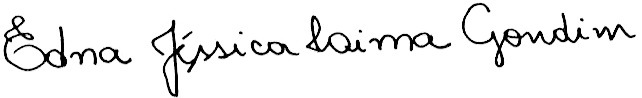 Edna Jéssica Raima Gondim